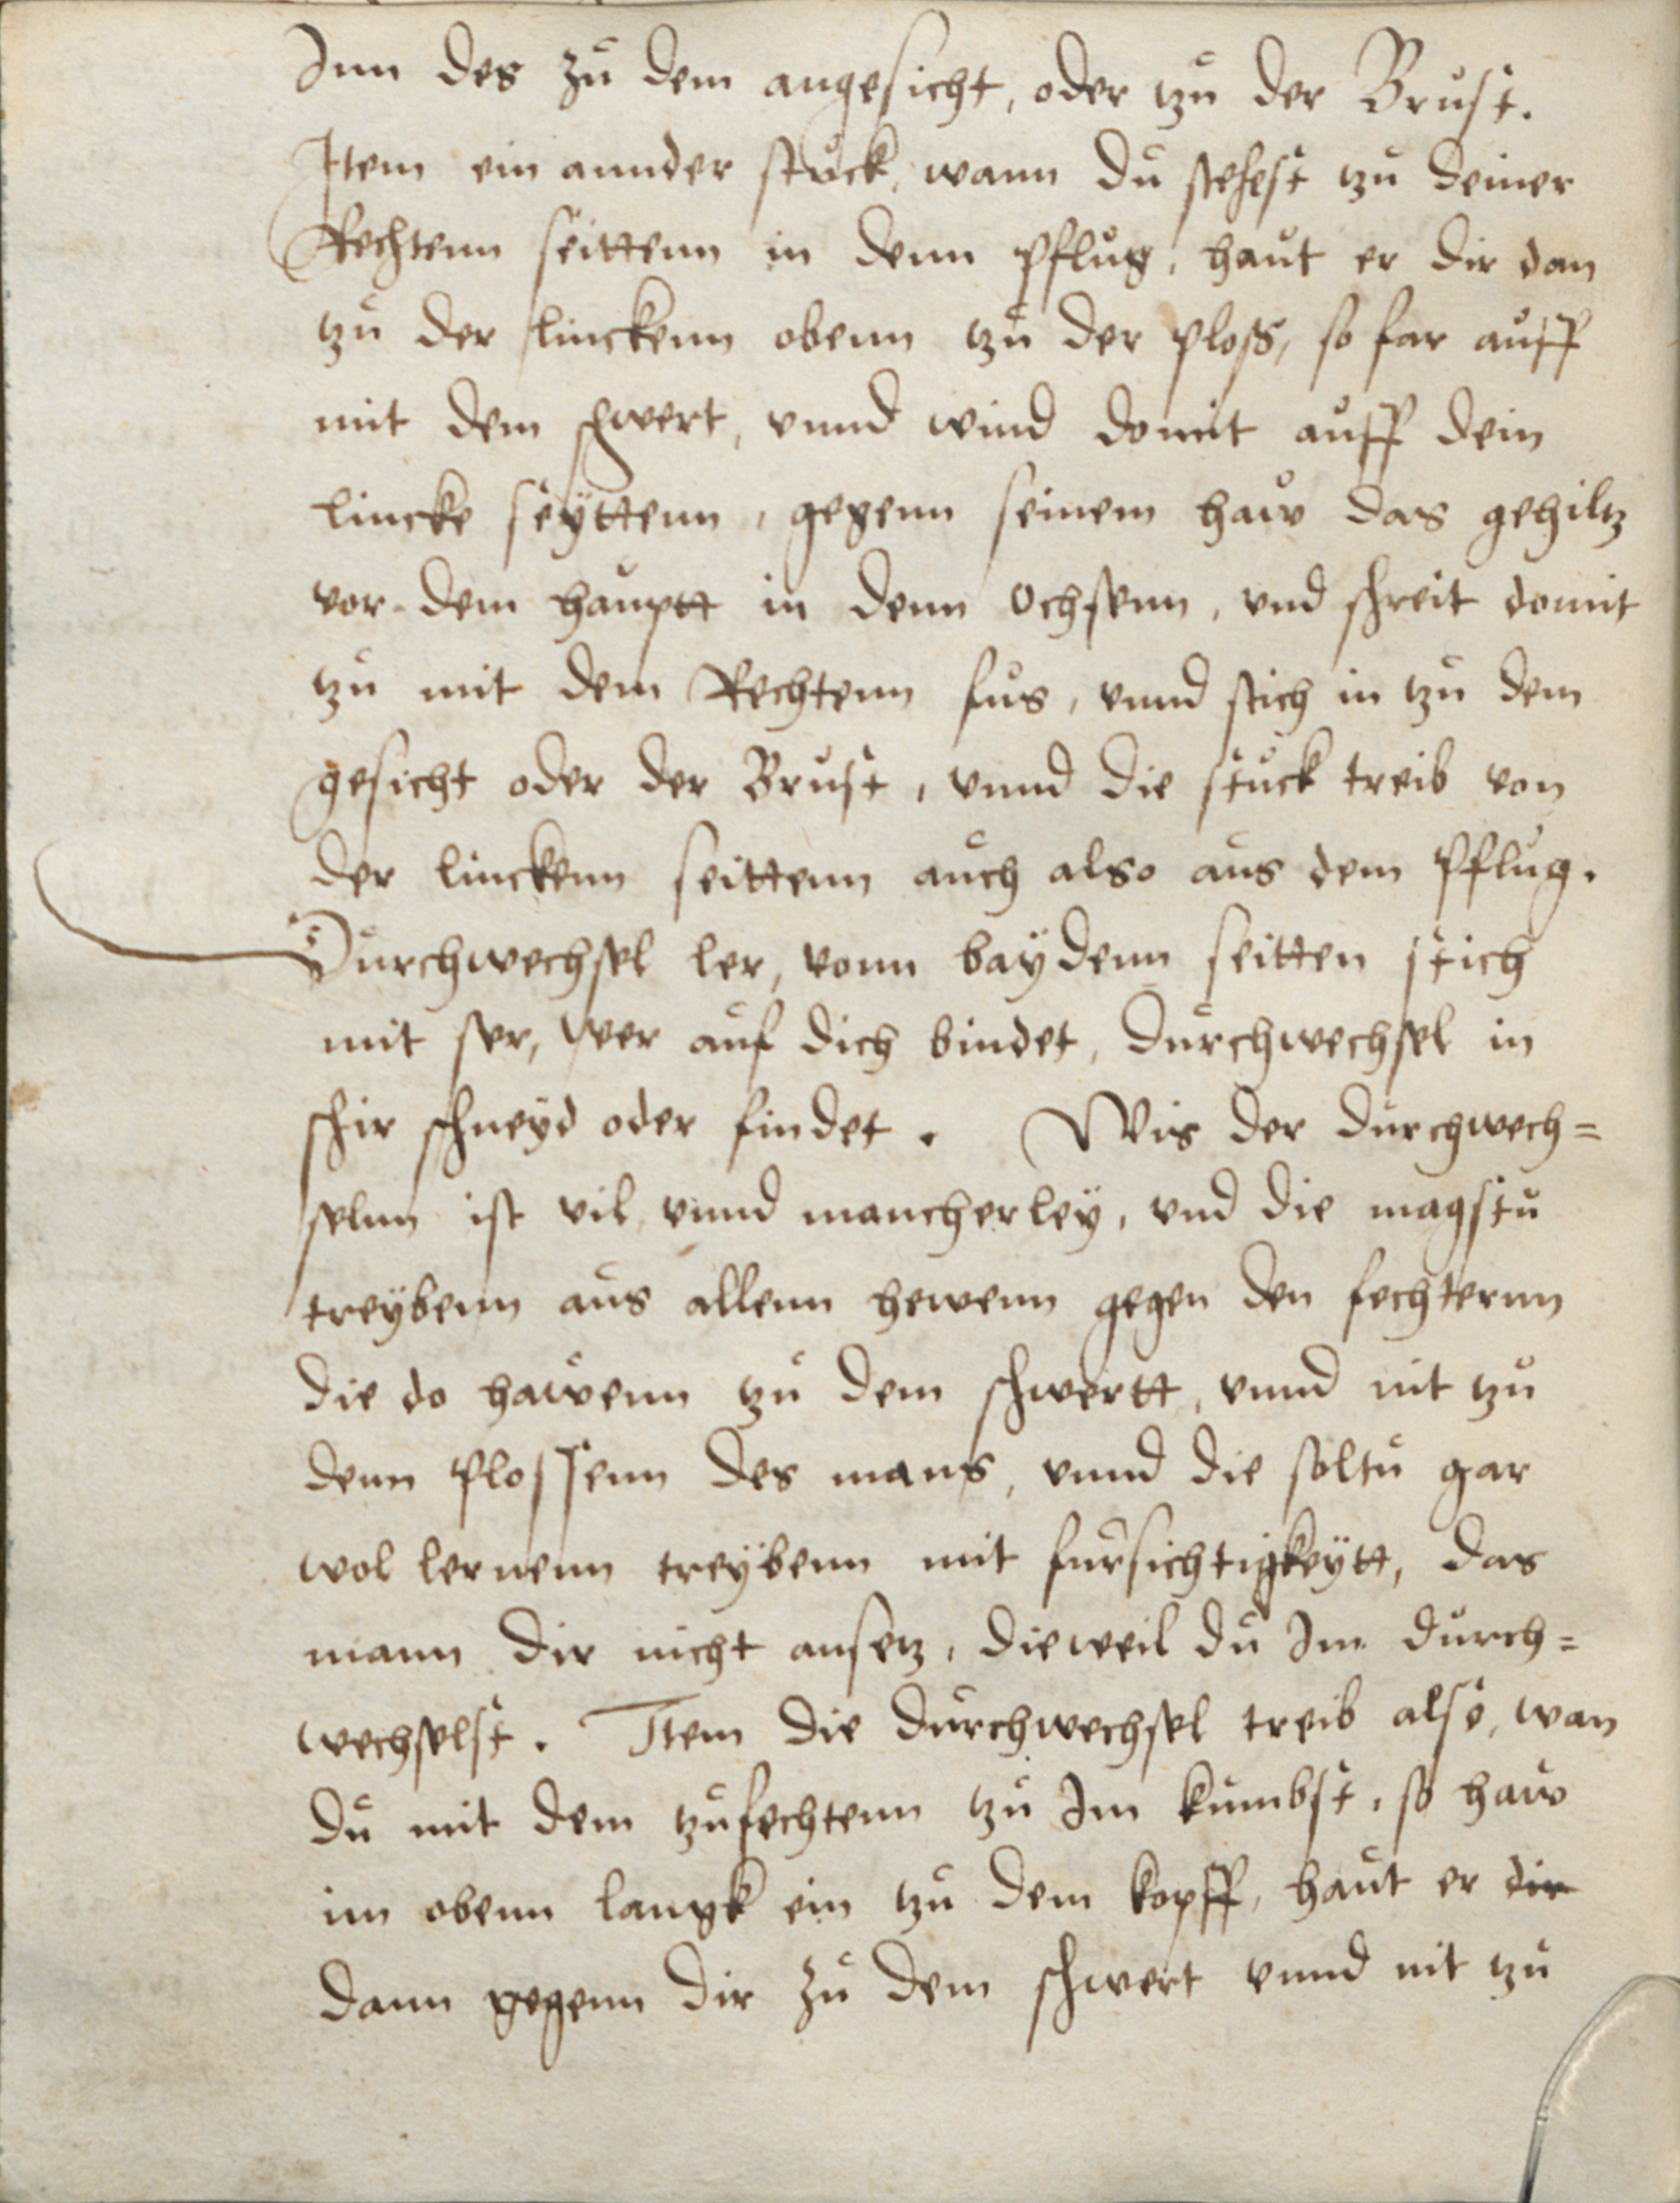 Inn des zu dem angesicht, oder tzu der Brust.
Item ein annder stuck, wann du stehest tzu deiner
Rechtenn seittenn in denn pflug, haut er dir dan
tzu der linckenn obenn tzu der ploß, so far auff
mit dem schwert, vnnd wind domit auff dein
lincke seÿttenn, gegenn seinem haw das gehiltz
vor dem hauptt in denn Ochsenn, vnd schreit domit
tzu mit dem Rechtenn fus, vnnd stich in tzu dem
gesicht oder der Brust, vnnd die stuck treib von
der linckenn seittenn auch also aus dem Pflug.
Durchwechsel ler, vonn baydenn seitten stich
mit ser, wer auf dich bindet, durchwechsel in
schir schneyd oder findet. Wis der durchwech=
selnn ist vil vnnd mancherleÿ, vnd die magstu
treÿbenn aus allenn hewenn gegen den fechternn
die do hawenn tzu dem schwertt, vnnd nit tzu
denn Plossenn des mans, vnnd die soltu gar
wol lernenn treÿbenn mit fursichtigkeÿtt, das
mann dir nicht ansetz, dieweil du Im durch=
wechselst. Item die durchwechsel treib also, wan
du mit dem tzufechtenn tzu Im kumbst, so haw
im obenn langk ein tzu dem kopff, haut er dir
dann gegenn dir zu dem schwert vnnd nit tzu